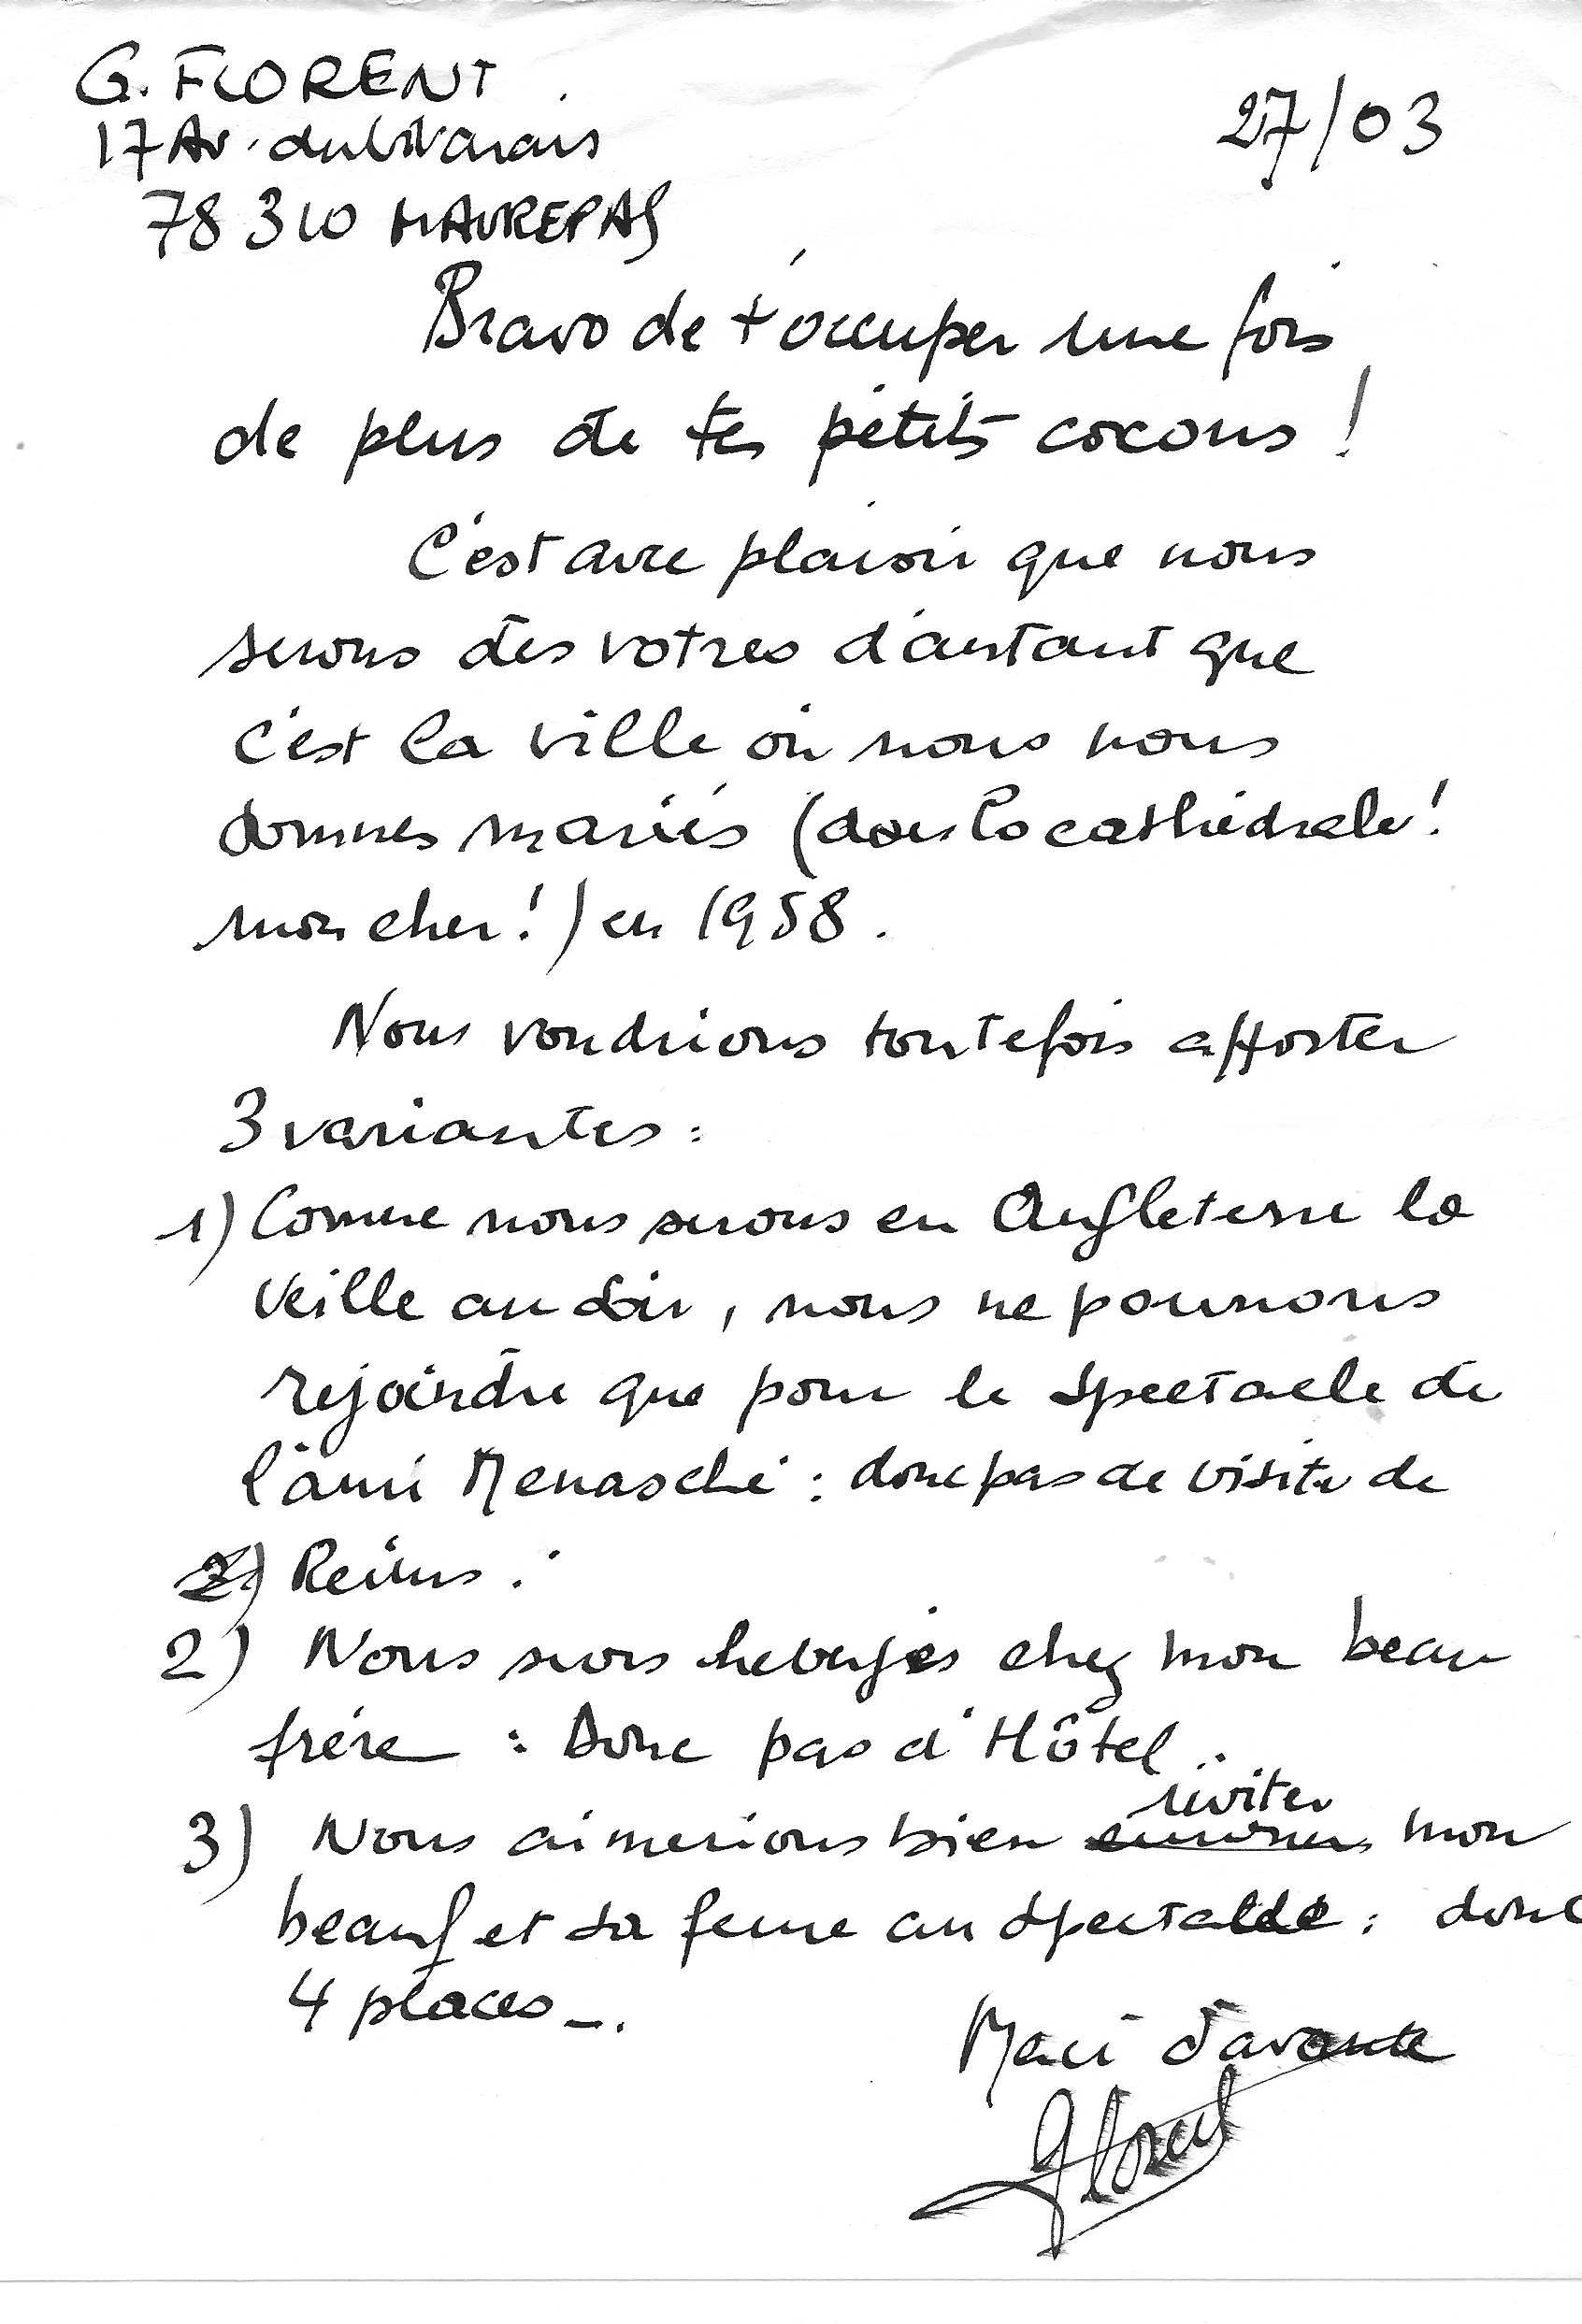 G. FLORENT
27/03
17 Av. du Vivarais
78310 MAUREPAS
Bravo de t'occuper une fois
de plus de tes petits cocons !
C'est avec plaisir que nous
serons des votres d'autant que
c'est la ville où nous nous
sommes mariés (dans la cathédrale !
mon cher !) en 1958.
Nous voudrions toutefois apporter
3 variantes :
1) Comme nous serons en Angleterre la
veille au soir, nous ne pourrons
rejoindre que pour le spectacle de
l'ami Menasché : donc pas de visite de
2) Reims.
2) Nous serons hebergés chez mon beau
frère : Donc pas d'Hôtel.
inviter
3) Nous aimerions bien mon
beauf et sa femme au spectacle : donc
4 places -.
Merci d'avance
Florent